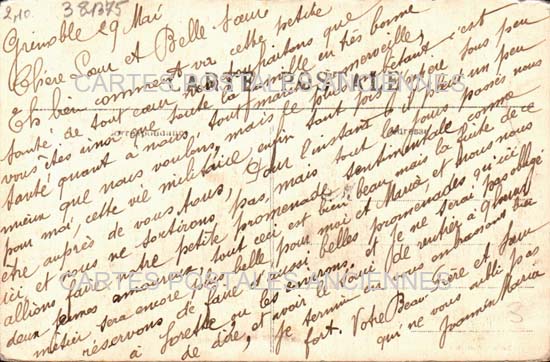 2,10. 381375
Grenoble 29 Mai
Chère Sœur et Belle Sœur
Eh bien comment va cette petite
santé, de tout cœur nous souhaitons que
vous êtes ainsi que toute la famille en très bonne
santé quant à nous, tout marche à merveille,
mieux que nous voulons, mais le plus embêtant c'est
pour moi, cette vie militaire, enfin tant pis, il faut un peu
être auprès de vous tous, Pour l'instant
ici, et nous ne sortirons pas, mais tout
allions faire notre petite promenade sentimentale comme
deux jeunes amants, tout ceci est bien beau, mais la fuite de ce
métier sera encore plus belle pour moi et Maria, et nous nous
réservons de faire d'aussi belles promenades qu'ici
à ou les environs, et je ne serai pas obligé
de dire, et avoir le souci de rentrer à 9 heures
Je termine en vous embrassant bien
fort. Votre Beau frère et Sœur
qui ne vous oublie pas
Maria
CARTE POSTALE
Correspondance
Adresse
CARTES POSTALES ANCIENNES
CARTES POSTALES ANCIENNES
3